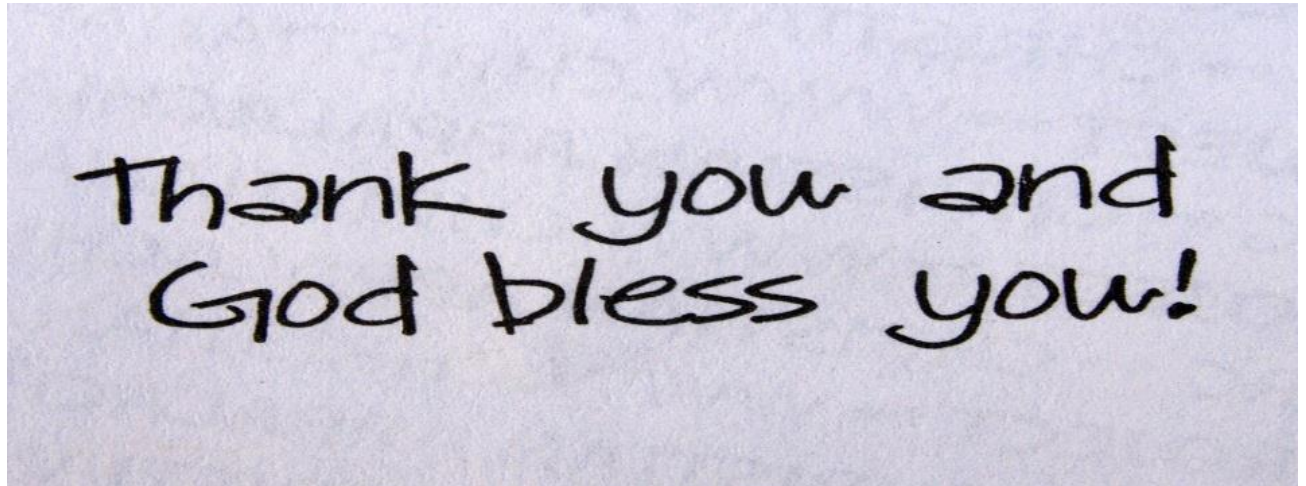 Thank you and
God bless you!